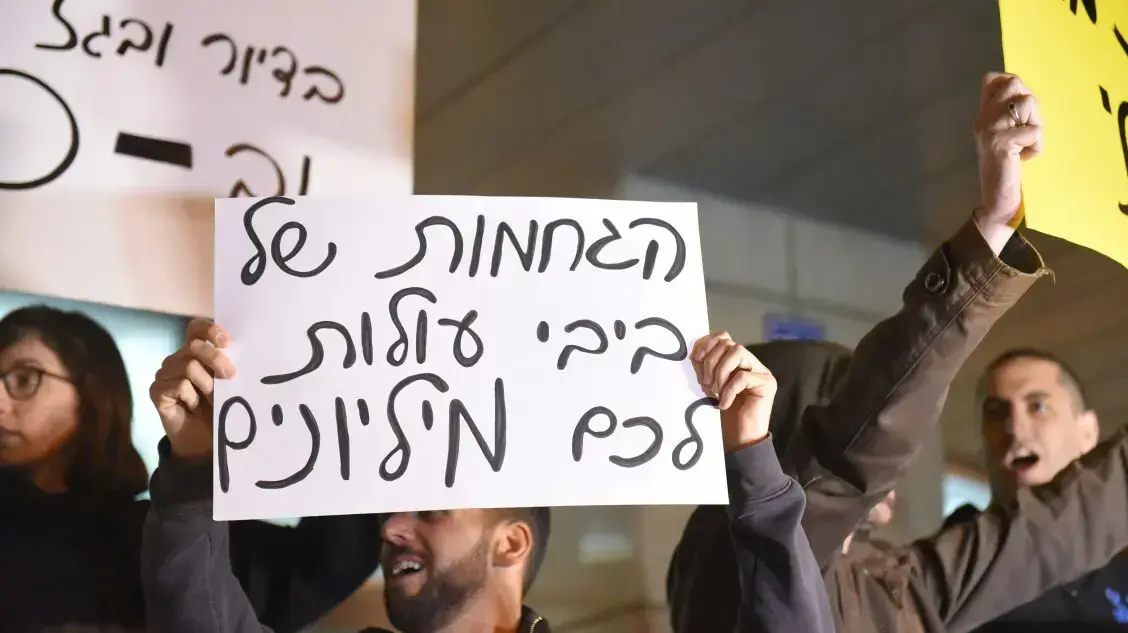 בדיור ובגז
וב-
הגחמות של
ביבי עולות
לכם מיליונים